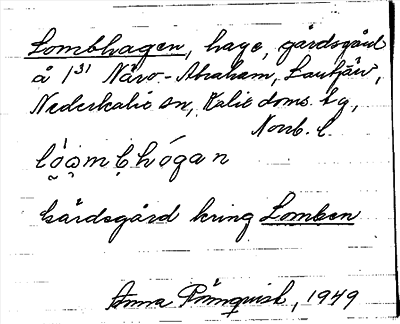 Lombhagen, hage, gårdsgård
å 1³¹ Närv-Abraham, Lautjärv,
Nederkalix sn, Kalix doms. tg,
Norrb. l.
lo̯òmb̥hógan
Gårdsgård kring Lomben
Anna Rönnquist, 1949